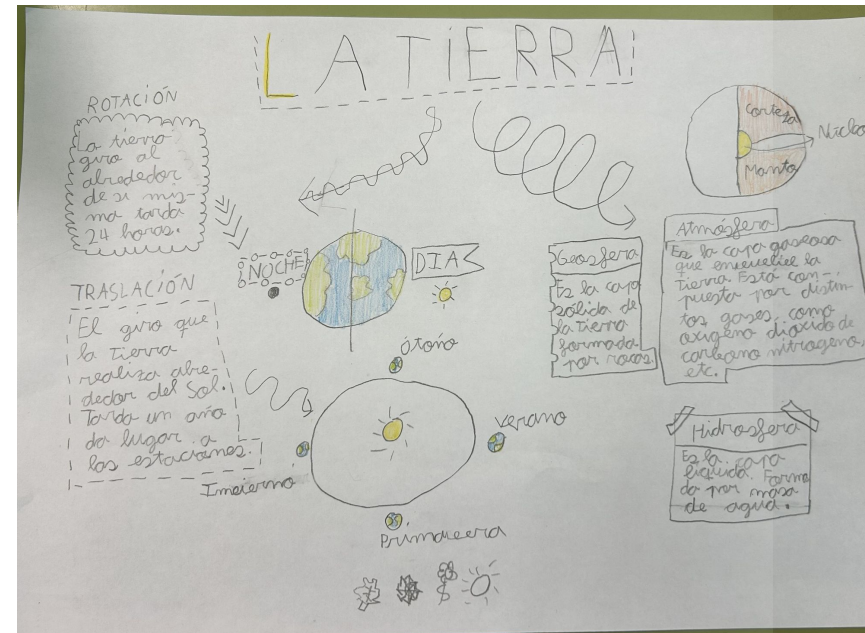 LA TIERRA
ROTACIÓN
La tierra
gira al
alrededor
de si mis-
ma tarda
24 horas.
NOCHE
DIA
TRASLACIÓN
El giro que
la Tierra
realiza alre-
dedor del Sol.
Tarda un año
da lugar a
las estaciones.
Ótoño
verano
Inveierno
Primavera
Corteza
Núcleo
Manto
Geosfera
Es la capa
sólida de
la tierra
formada
por rocas.
Atmósfera
Es la capa gaseosa
que envuelve la
Tierra Está com-
puesta por distin-
tos gases, como
oxígeno dióxido de
carbono nitrogeno,
etc.
Hidrosfera
Es la capa
líquida. Forma
da por masa
de agua.